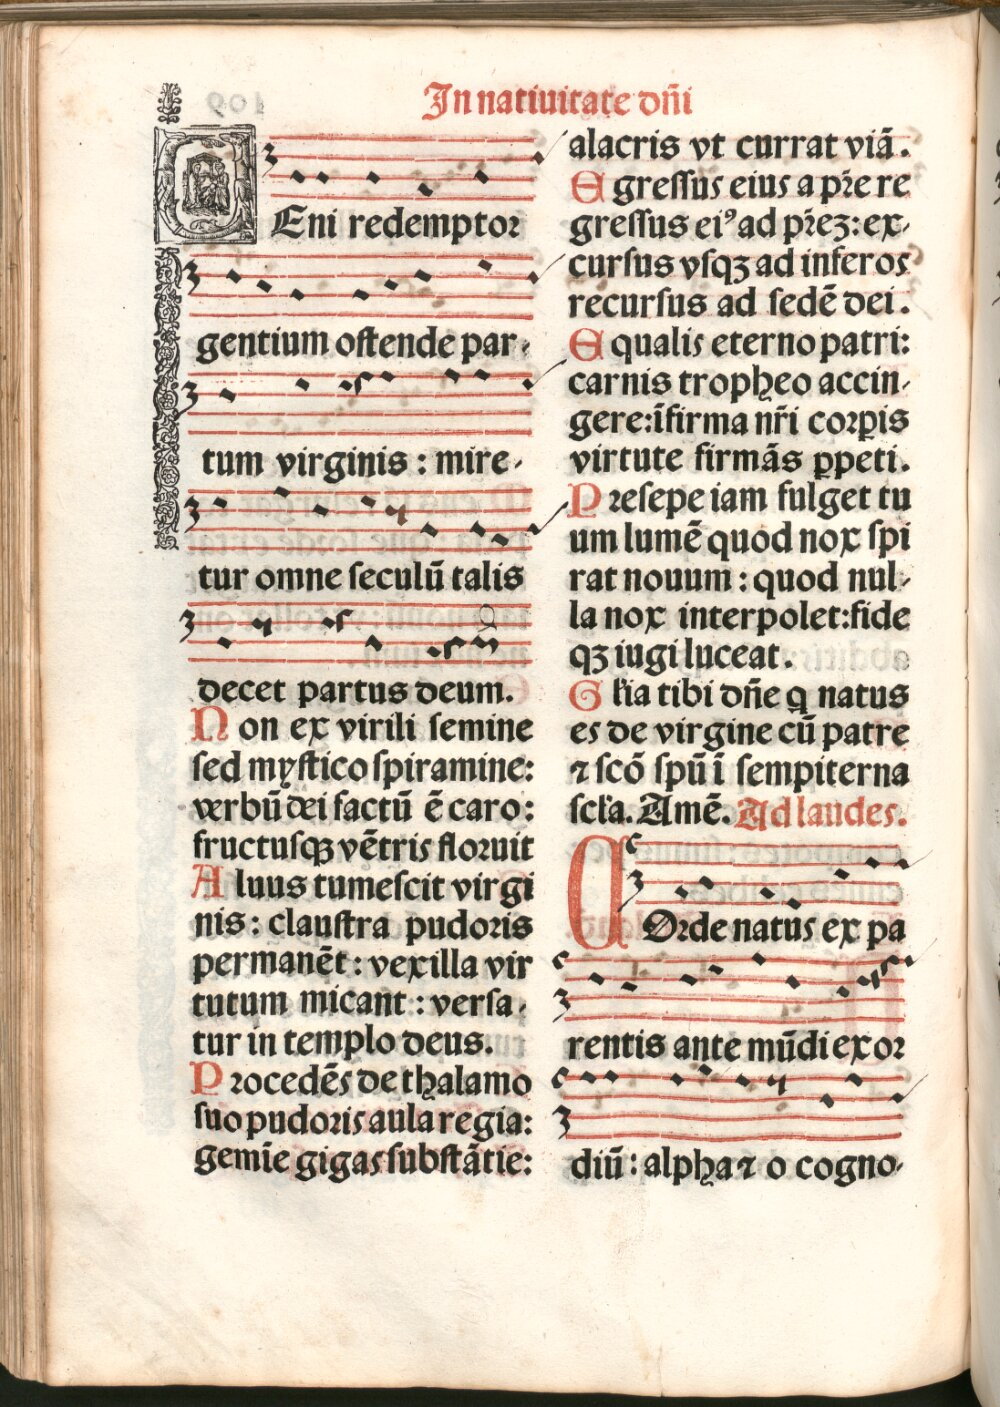 In natiuitate dñi
Eni redemptor
gentium ostende par-
tum virginis : mire-
tur omne seculū talis
decet partus deum.
Non ex virili semine
sed mystico spiramine:
verbū dei factū ē caro:
fructusqȝ vētris floruit
Aluus tumescit virgi
nis : claustra pudoris
permanēt : vexilla vir
tutum micant : versa-
tur in templo deus.
Procedēs de thalamo
suo pudoris aula regia:
gemīe gigas substātie:
alacris vt currat viā.
Egressus eius a pr̄e re
gressus eiꝰ ad pr̄eȝ: ex-
cursus vsqȝ ad inferos
recursus ad sedē dei.
Equalis eterno patri:
carnis tropheo accin-
gere: īfirma nr̄i corꝑis
virtute firmās ꝑpeti.
Presepe iam fulget tu
um lumē quod nox spi
rat nouum : quod nul-
la nox interpolet: fide
qȝ iugi luceat.
Gl̄ia tibi dñe q natus
es de virgine cū patre
⁊ scō spū ī sempiterna
scl̄a. Amē. Ad laudes.
COrde natus ex pa
rentis ante mūdi exor
diū : alpha ⁊ o cogno-